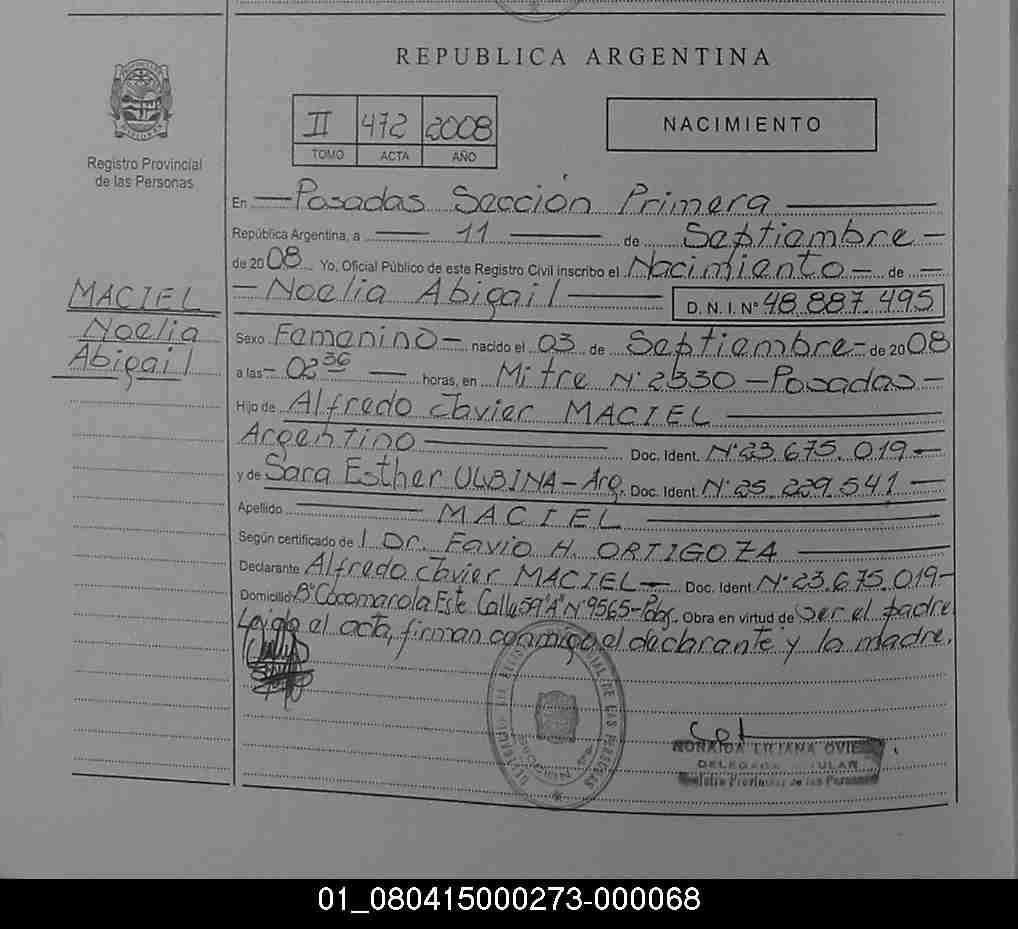 REPUBLICA ARGENTINA
II 472 2008
TOMO ACTA AÑO
NACIMIENTO
Registro Provincial
de las Personas
En — Posadas Sección Primera —
República Argentina, a — 11 — de Septiembre —
de 2008 Yo, Oficial Público de este Registro Civil inscribo el Nacimiento — de —
— Noelia Abigail — D. N. I. N° 48.887.495
MACIEL
Noelia
Abigail
Sexo Femenino — nacido el 03 de Septiembre — de 2008
a las — 02 36 — horas, en Mitre N° 2330 — Posadas —
Hijo de Alfredo Javier MACIEL —
Argentino — Doc. Ident. N° 23.675.019 —
y de Sara Esther ULBINA — Arg. Doc. Ident. N° 25.229.541 —
Apellido — MACIEL —
Según certificado de Dr. Favio H. ORTIGOZA —
Declarante Alfredo Javier MACIEL — Doc. Ident. N° 23.675.019 —
Domicilio B° Cocomarola Este Calle 59 "A" N° 9565 - Pdas. Obra en virtud de Ser el padre
Leído el acta, firman conmigo el declarante y la madre.
LILIANA
DELEGADA
de las Personas
01_080415000273-000068